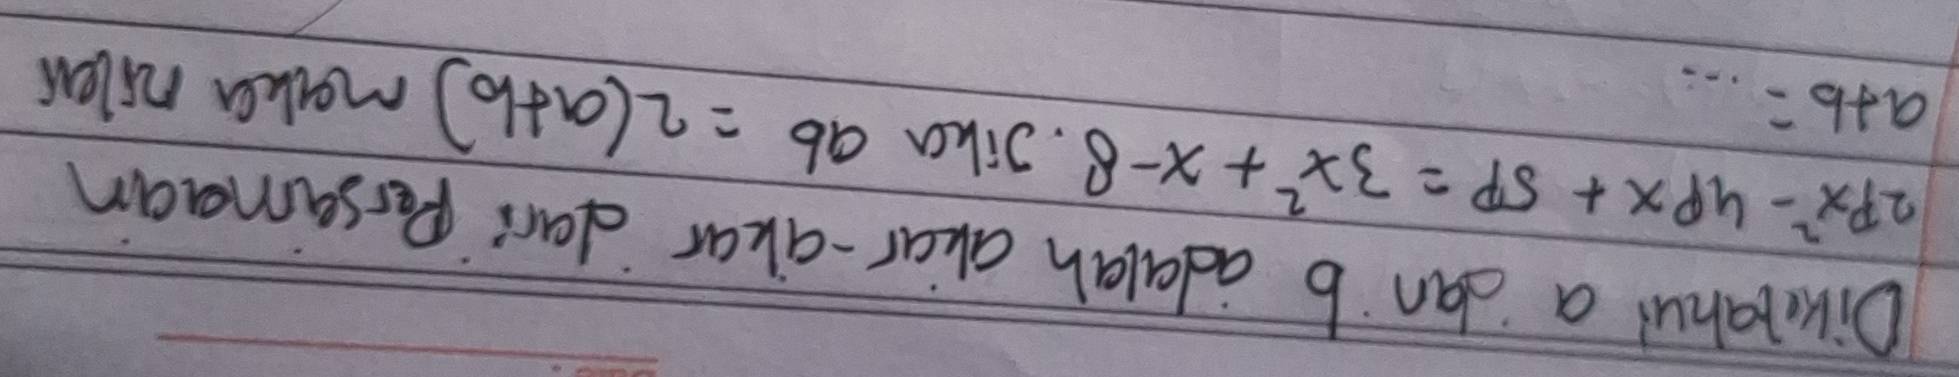 Diketahui a dan b adalah akar-akar dari Persamaan
2Px² - 4Px + 5P = 3x² + x - 8. Jika ab = 2(a+b) maka nilai
a+b = ...